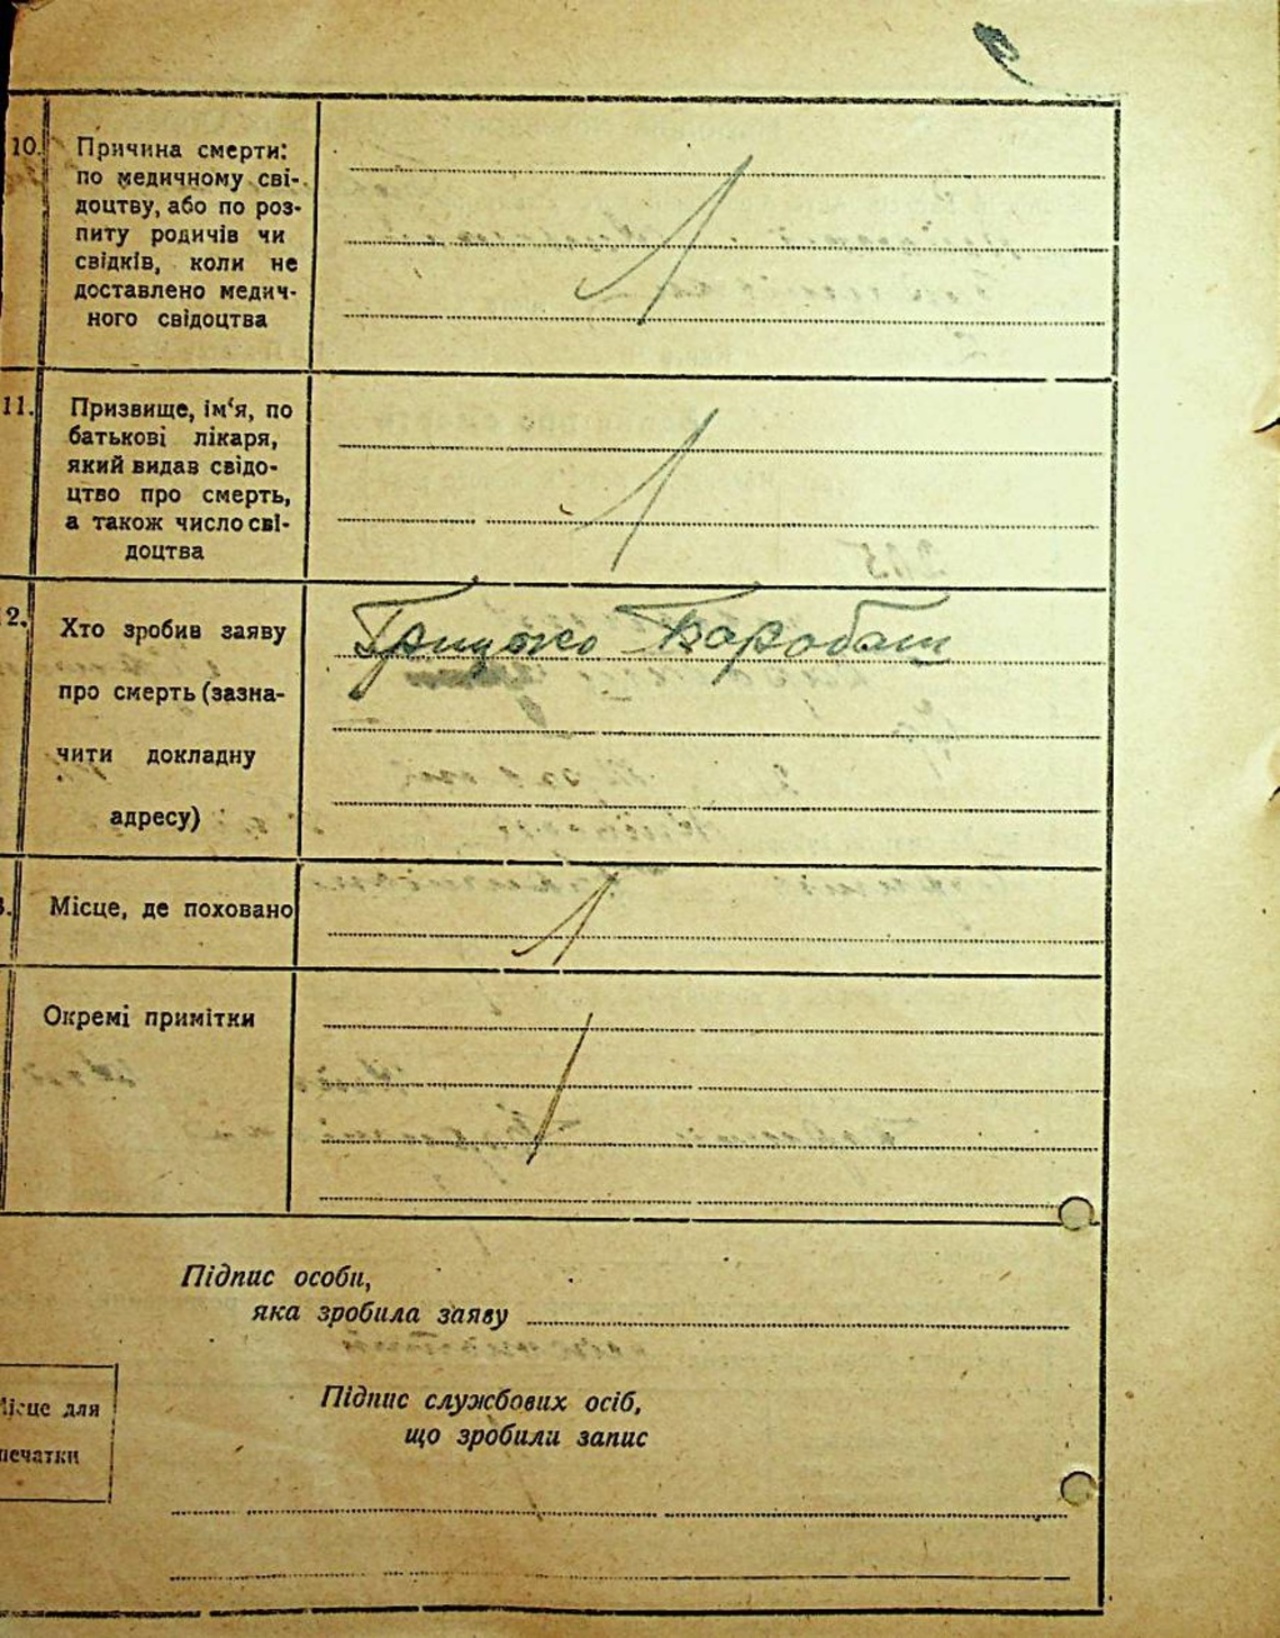 10. Причина смерти:
по медичному сві-
доцтву, або по роз-
питу родичів чи
свідків, коли не
доставлено медич-
ного свідоцтва
11. Призвище, ім‘я, по
батькові лікаря,
який видав свідо-
цтво про смерть,
а також число сві-
доцтва
2. Хто зробив заяву
про смерть (зазна-
чити докладну
адресу)
Грицько Барабаш
Місце, де поховано
Окремі примітки
Підпис особи,
яка зробила заяву
Підпис службових осіб,
що зробили запис
Місце для
печатки